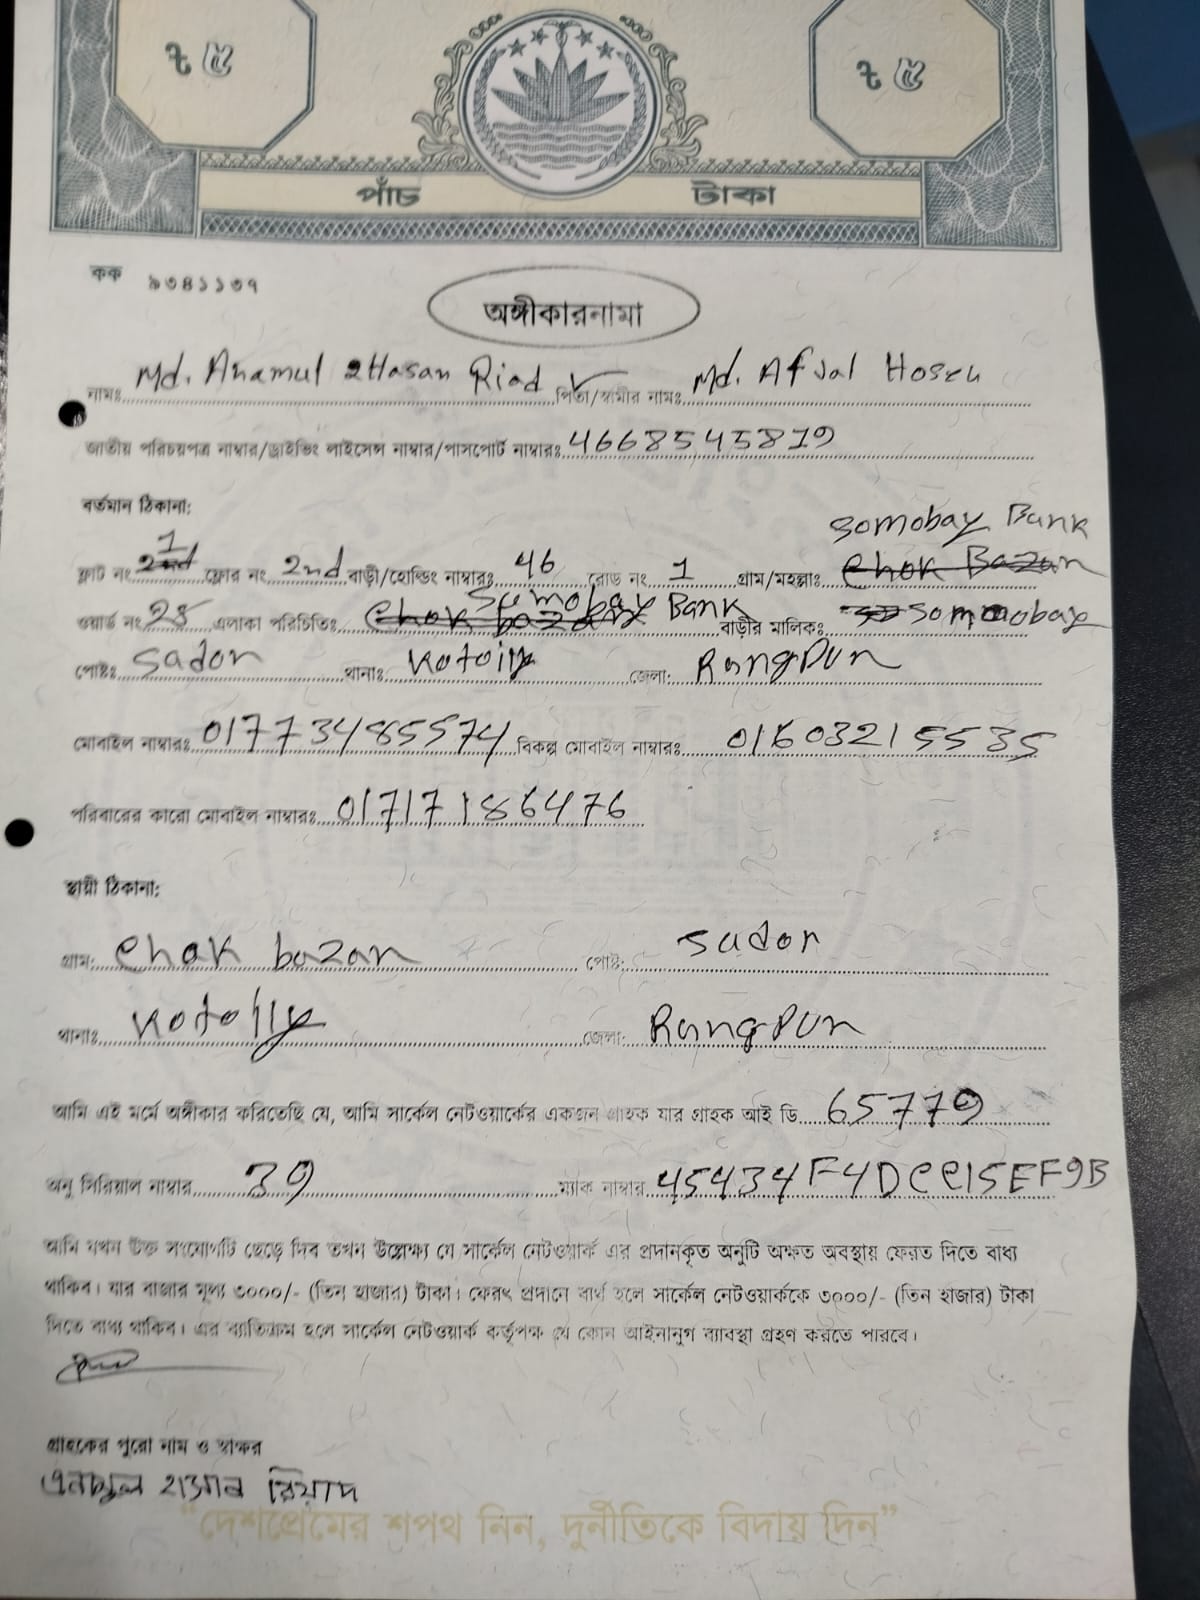 ৳ ৫ ৳ ৫
পাঁচ টাকা
কক ৯৩৪১১৩৭
অঙ্গীকারনামা
নামঃ Md. Anamul Hasan Riad পিতা/স্বামীর নামঃ Md. Afjal Hosen
জাতীয় পরিচয়পত্র নাম্বার/ড্রাইভিং লাইসেন্স নাম্বার/পাসপোর্ট নাম্বারঃ 4668545819
বর্তমান ঠিকানা:
somobay Bank
ফ্লাট নং 1 ফ্লোর নং 2nd বাড়ী/হোল্ডিং নাম্বারঃ 46 রোড নং 1 গ্রাম/মহল্লাঃ
ওয়ার্ড নং এলাকা পরিচিতিঃ Somobay Bank বাড়ীর মালিকঃ somobay
পোষ্টঃ sador থানাঃ Kotoily জেলা: Rangpur
মোবাইল নাম্বারঃ 01773485574 বিকল্প মোবাইল নাম্বারঃ 01603215535
পরিবারের কারো মোবাইল নাম্বারঃ 01717186476
স্থায়ী ঠিকানা:
গ্রাম: Chak bazar পোষ্ট: sador
থানাঃ Kotolly জেলা: Rangpur
আমি এই মর্মে অঙ্গীকার করিতেছি যে, আমি সার্কেল নেটওয়ার্কের একজন গ্রাহক যার গ্রাহক আই ডি 65779
অনু সিরিয়াল নাম্বার 39 ম্যাক নাম্বার 45434F4DCC15EF9B
আমি যখন উক্ত সংযোগটি ছেড়ে দিব তখন উল্লেক্ষ্য যে সার্কেল নেটওয়ার্ক এর প্রদানকৃত অনুটি অক্ষত অবস্থায় ফেরত দিতে বাধ্য
থাকিব। যার বাজার মূল্য ৩০০০/- (তিন হাজার) টাকা। ফেরৎ প্রদানে ব্যর্থ হলে সার্কেল নেটওয়ার্ককে ৩০০০/- (তিন হাজার) টাকা
দিতে বাধ্য থাকিব। এর ব্যতিক্রম হলে সার্কেল নেটওয়ার্ক কর্তৃপক্ষ যে কোন আইনানুগ ব্যবস্থা গ্রহণ করতে পারবে।
গ্রাহকের পুরো নাম ও স্বাক্ষর
এনামুল হাসান রিয়াদ
“দেশপ্রেমের শপথ নিন, দুর্নীতিকে বিদায় দিন”